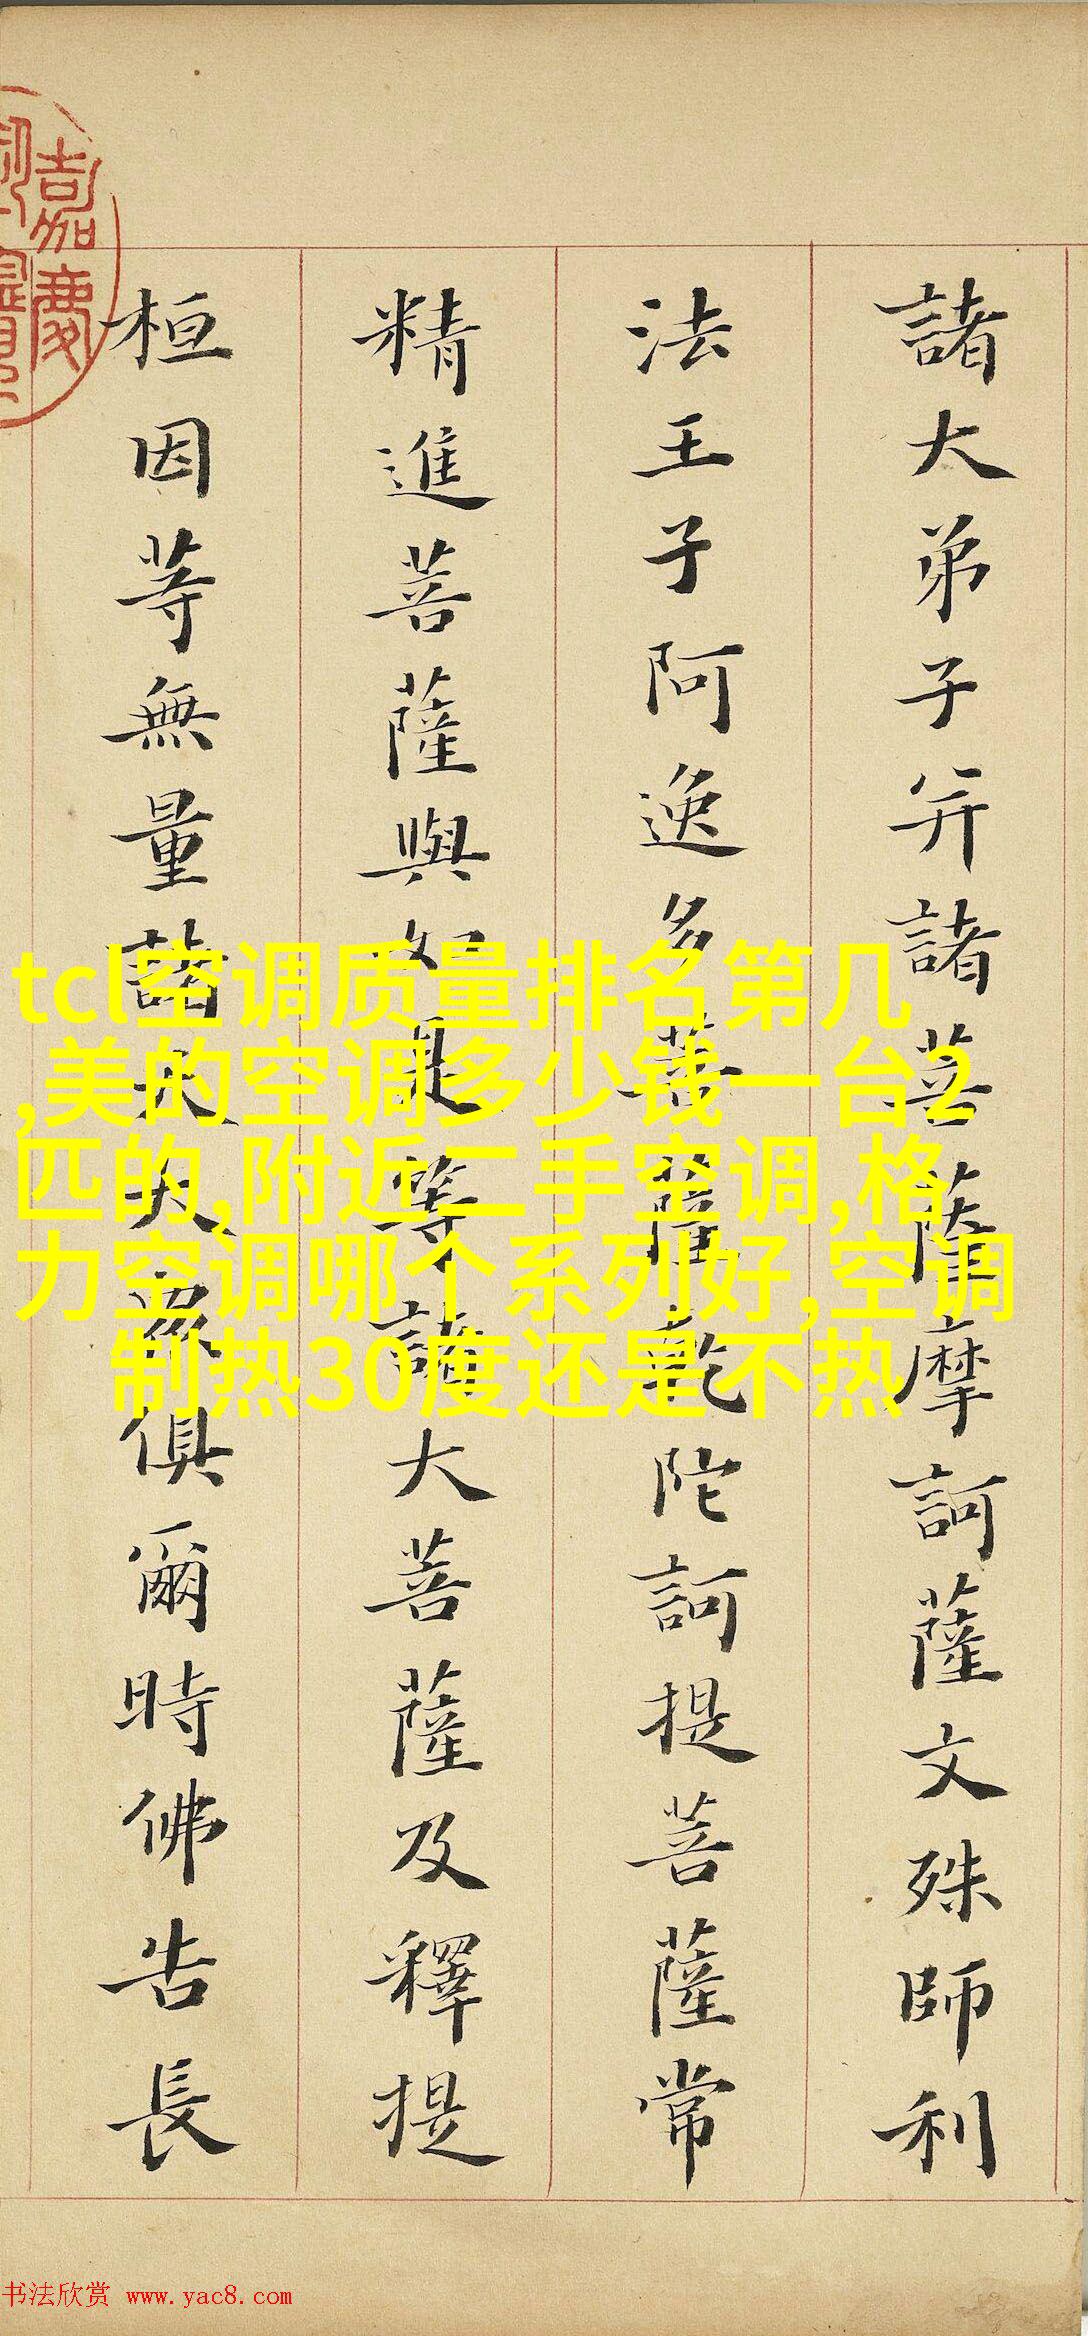 諸大弟子并諸菩薩摩訶薩文殊師利
法王子阿逸多菩薩乾陀訶提菩薩常
精進菩薩與如是等諸大菩薩及釋提
桓因等無量諸天大眾俱爾時佛告長
嘉慶
tcl空调质量排名第几
,美的空调多少钱一台2
匹的,附近二手空调,格
力空调哪个系列好,空调
制热30度还是不热
书法欣赏 www.yac8.com